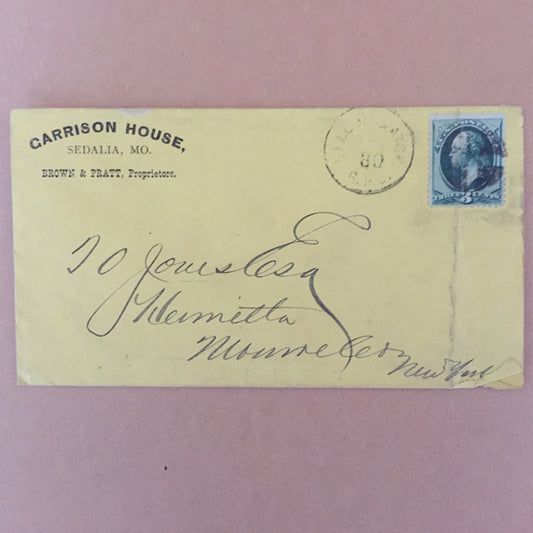 GARRISON HOUSE,
SEDALIA, MO.
BROWN & PRATT, Proprietors.
80
R.P.O.
THREE CENTS
3
Jones Esq
Henrietta
Monroe Co
New York